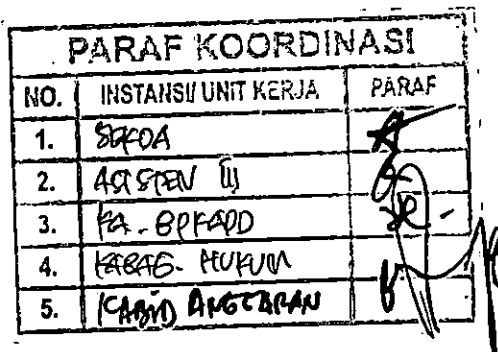 PARAF KOORDINASI
NO. INSTANSI/ UNIT KERJA PARAF
1. SEKDA
2. ASISTEN III
3. KA. BPKAPD
4. KABAG. HUKUM
5. KABID ANGGARAN